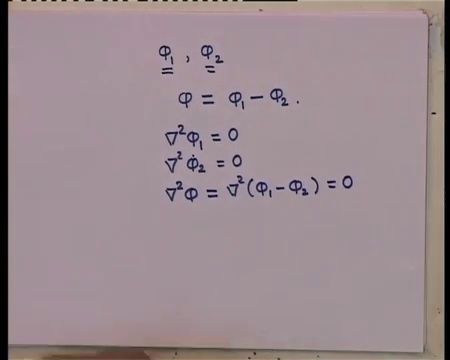 φ₁ , φ₂
φ = φ₁ − φ₂ .
∇²φ₁ = 0
∇²φ₂ = 0
∇²φ = ∇²(φ₁ − φ₂) = 0